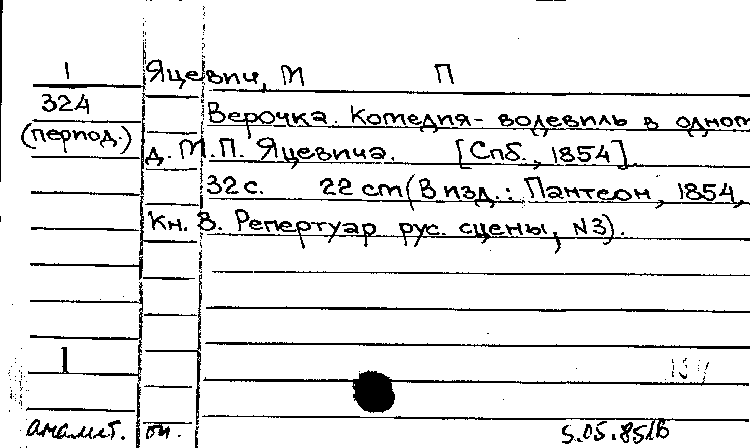 1 Яцевич, М П
324
Верочка. Комедия-водевиль в одном
(период.)
д. М.П. Яцевича. [Спб., 1854].
32 с. 22 cm (В изд.: Пантеон, 1854,
кн. 8. Репертуар рус. сцены, №3).
1
аналит. оп. 5.05.85